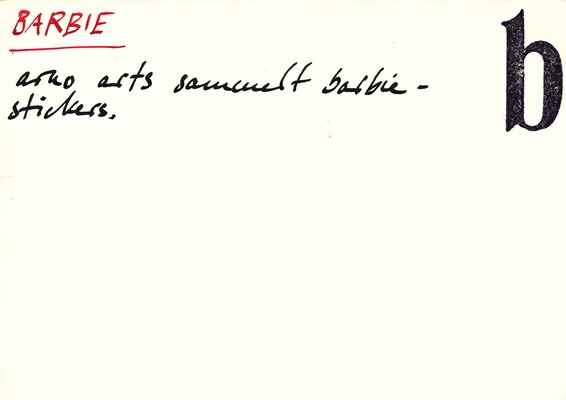 BARBIE
b
arno arts sammelt barbie-
stickers.